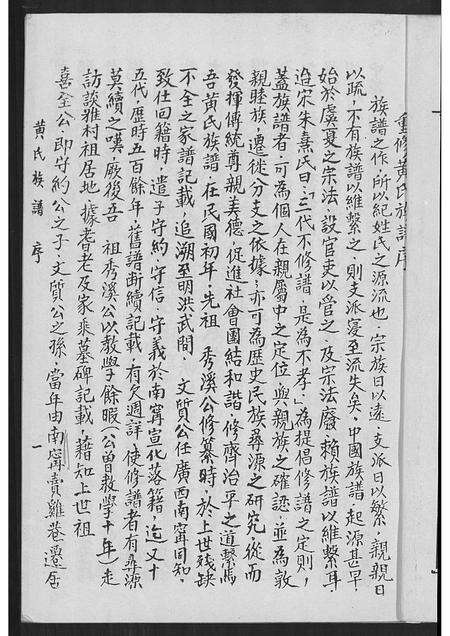 重修黃氏族譜序
族譜之作，所以紀姓氏之源流也，宗族日以遠，支派日以繁，親親日
以疏，不有族譜以維繫之，則支派寖至流失矣，中國族譜，起源甚早，
始於虞夏之宗法，設官吏以管之，及宗法廢，賴族譜以維繫耳
迨宋朱熹氏曰：「三代不修譜，是為不孝」為提倡修譜之定則，
蓋族譜者，可為個人在親屬中之定位，與親族之確認，並為敦
親睦族，遷徙分支之依據；亦可為歷史民族尋源之研究，從而
發揮傳統尊親美德，促進社會團結和諧，修齊治平之道繫焉
吾黃氏族譜，在民國初年，先祖 秀溪公修纂時，於上世殘缺
不全之家譜記載，追溯至明洪武間， 文質公任廣西南寧同知，
致仕回籍時，遣子守約，守信，守義於南寧宣化落籍，迄又十
五代，歷時五百餘年，舊譜斷續記載，有欠週詳，使修譜者有尋源
莫續之嘆，厥後吾 祖秀溪公以教學餘暇（公曾教學十年）走
訪談雅村祖居地，據耆老及家乘墓碑記載，藉知上世祖
喜全公，即守約公之子，文質公之孫，當年由南寧賣雞巷遷居
黃氏族譜 序 一